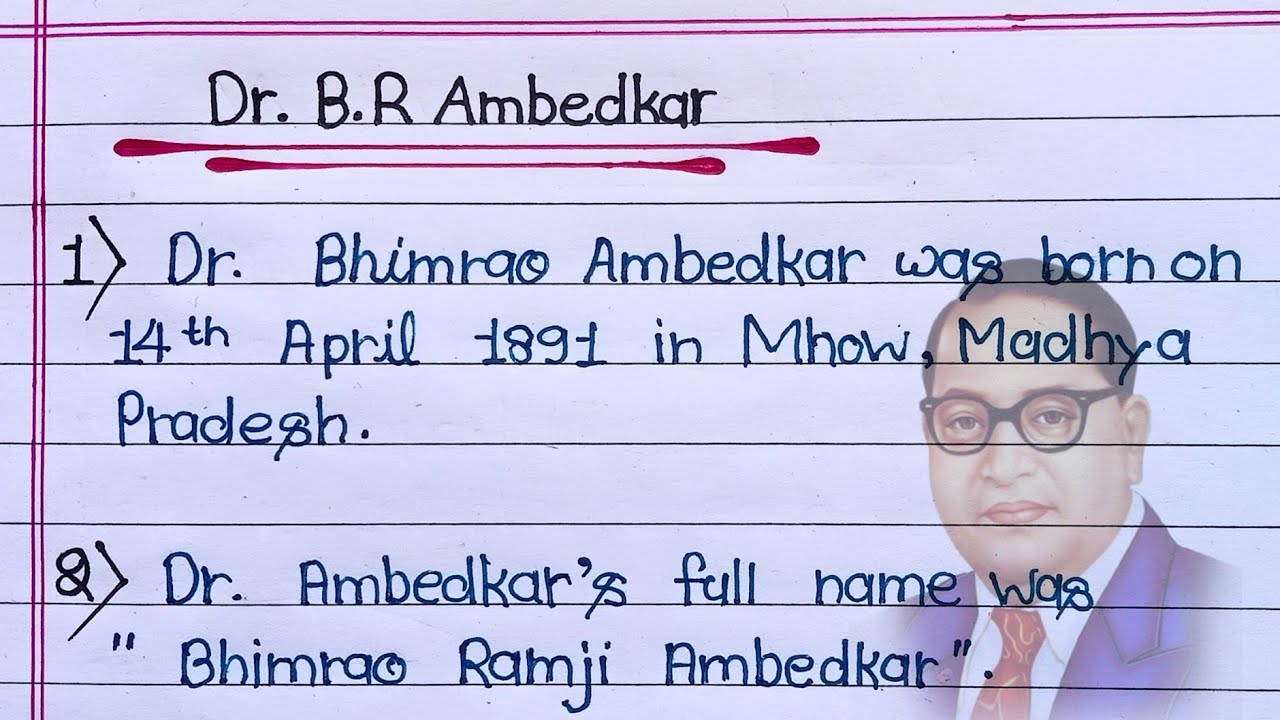 Dr. B.R Ambedkar
1) Dr. Bhimrao Ambedkar was born on
14th April 1891 in Mhow, Madhya
Pradesh.
2) Dr. Ambedkar's full name was
" Bhimrao Ramji Ambedkar".